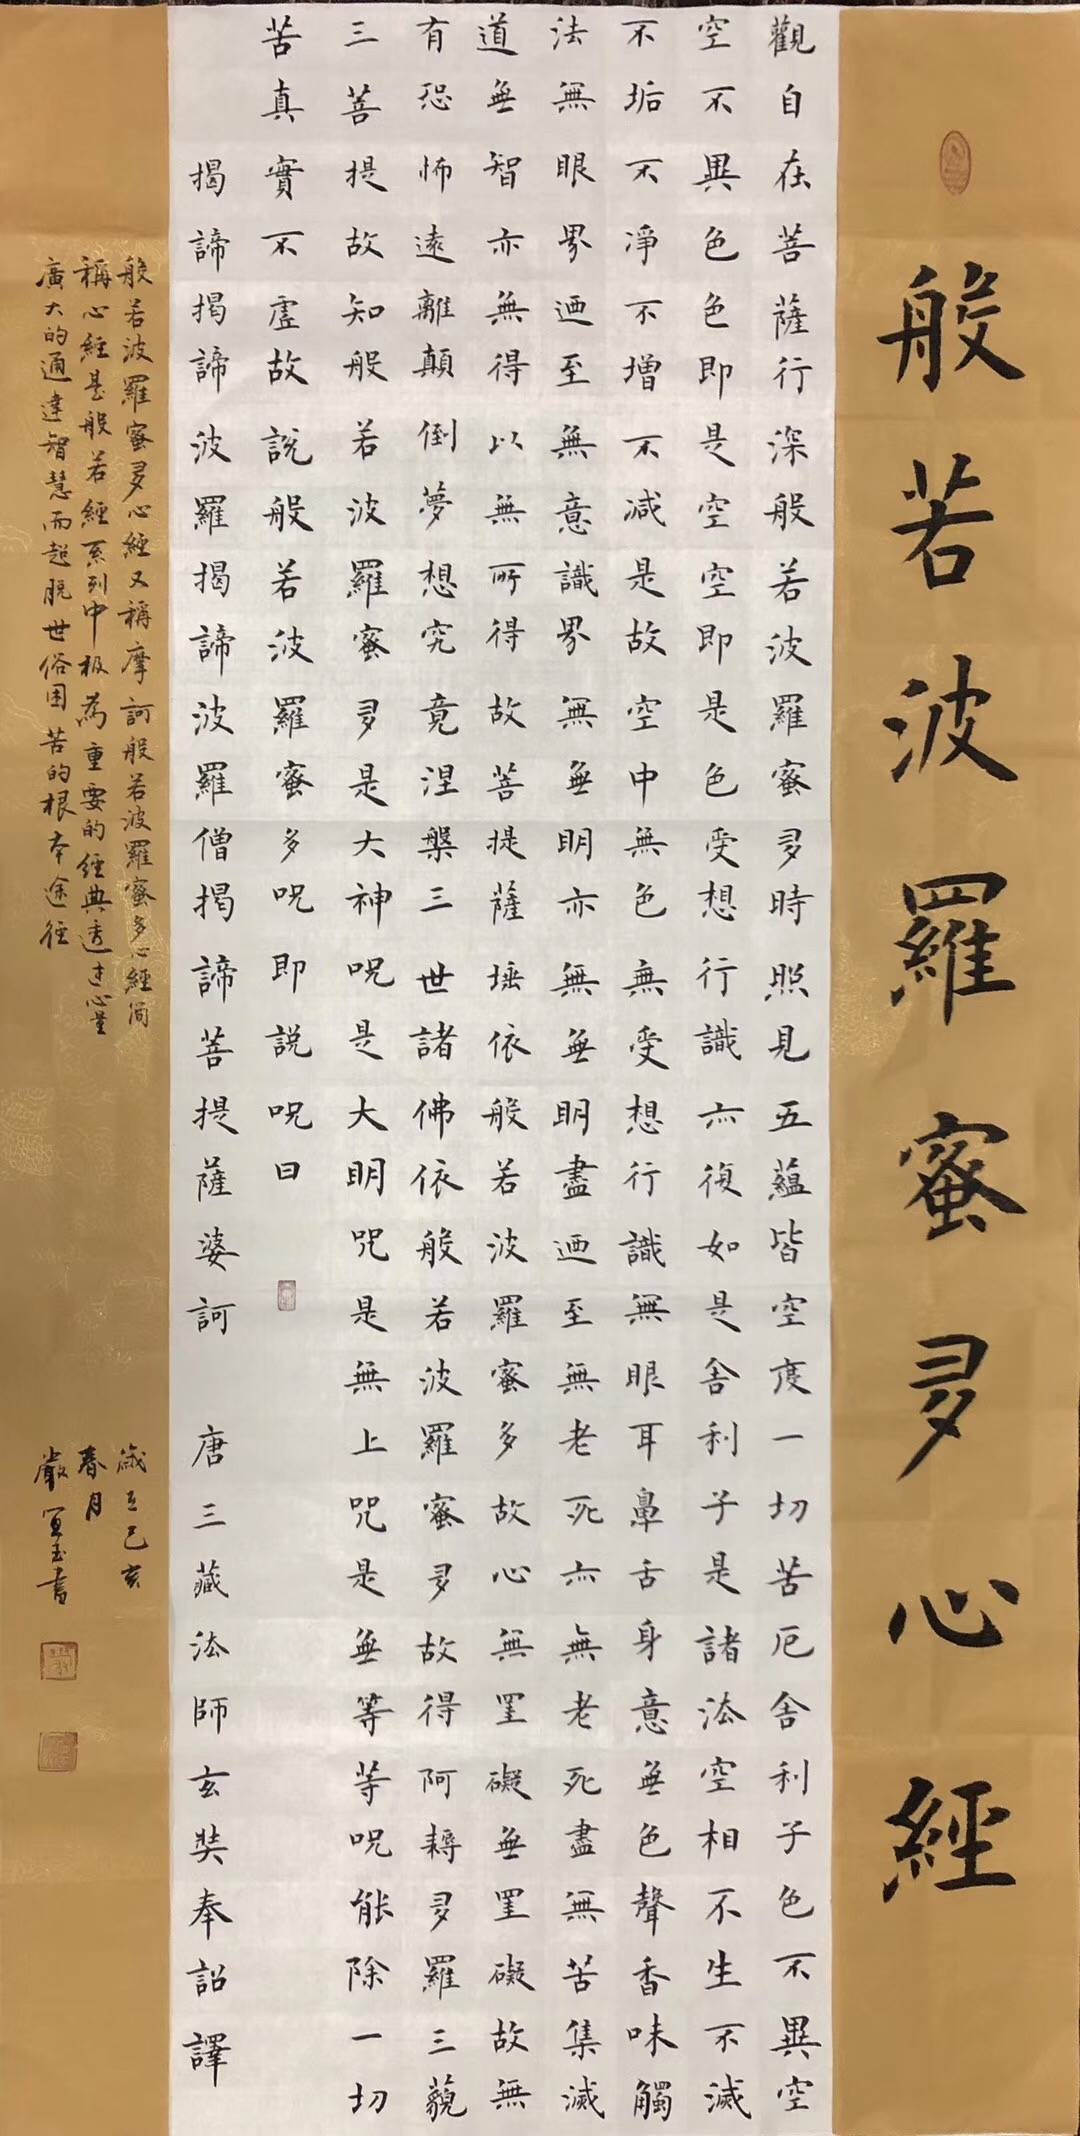 般若波羅蜜多心經
觀自在菩薩行深般若波羅蜜多時照見五蘊皆空度一切苦厄舍利子色不異空
空不異色色即是空空即是色受想行識亦復如是舍利子是諸法空相不生不滅
不垢不淨不增不減是故空中無色無受想行識無眼耳鼻舌身意無色聲香味觸
法無眼界迺至無意識界無無明亦無無明盡迺至無老死亦無老死盡無苦集滅
道無智亦無得以無所得故菩提薩埵依般若波羅蜜多故心無罣礙無罣礙故無
有恐怖遠離顛倒夢想究竟涅槃三世諸佛依般若波羅蜜多故得阿耨多羅三藐
三菩提故知般若波羅蜜多是大神咒是大明咒是無上咒是無等等咒能除一切
苦真實不虛故說般若波羅蜜多咒即說咒曰
揭諦揭諦波羅揭諦波羅僧揭諦菩提薩婆訶 唐三藏法師玄奘奉詔譯
般若波羅蜜多心經又稱摩訶般若波羅蜜多心經簡
稱心經是般若經系列中极為重要的經典透过心量
廣大的通達智慧而超脫世俗困苦的根本途徑
歲在己亥
春月
嚴玉書